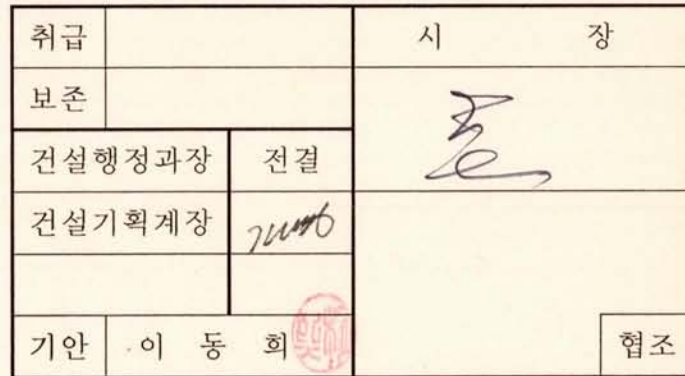 취급
시 장
보존
건설행정과장 전결
건설기획계장
기안 이 동 희
협조